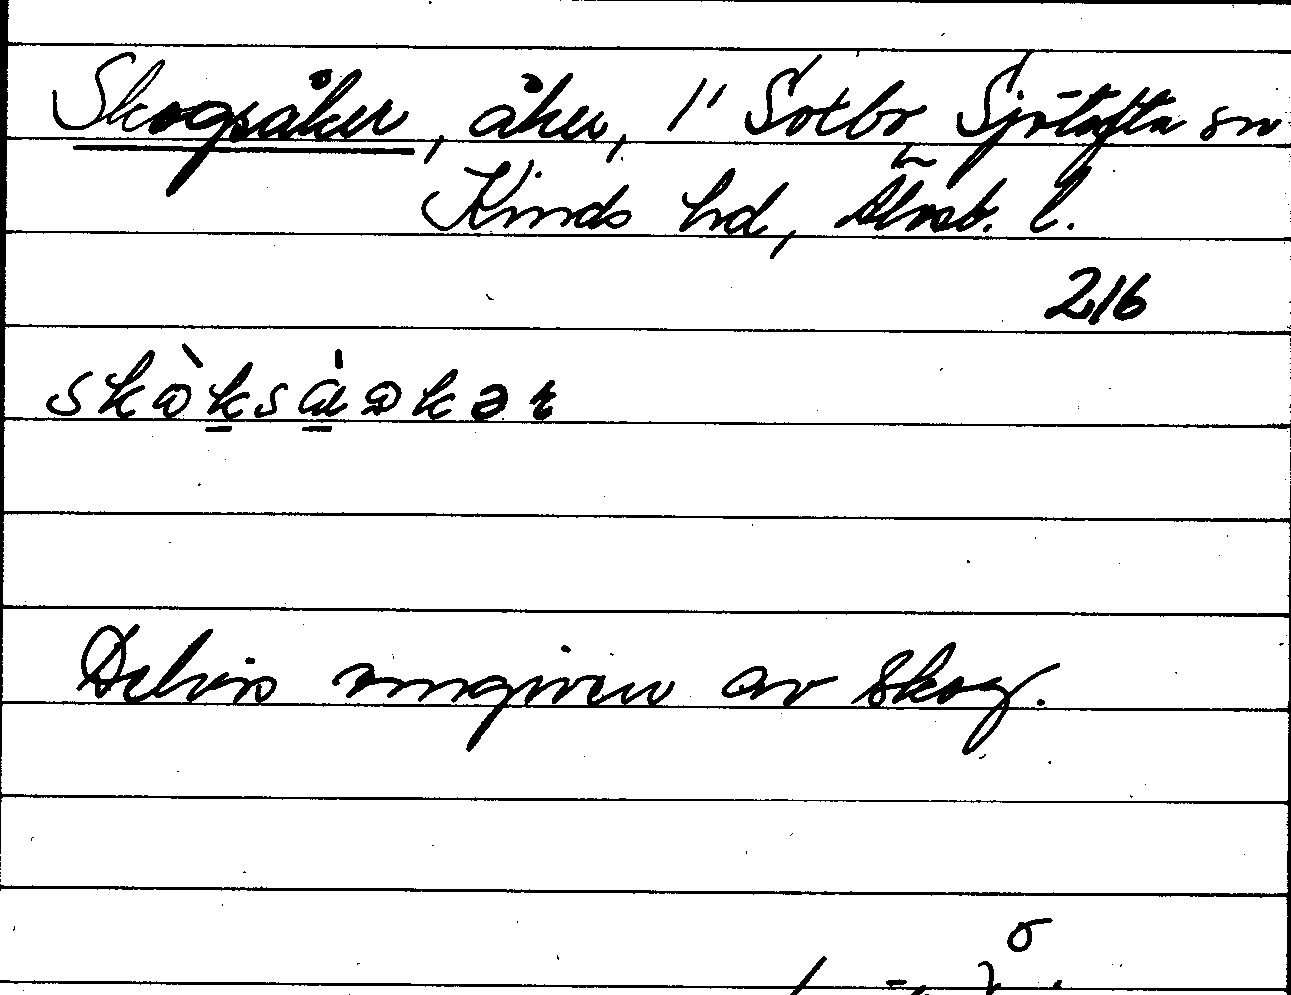 Skogsåker, åker, 1" Sotbo Sjötofta sn
Kinds hd, Älvsb. l.
216
skòksàɷkər
Delvis omgiven av skog.